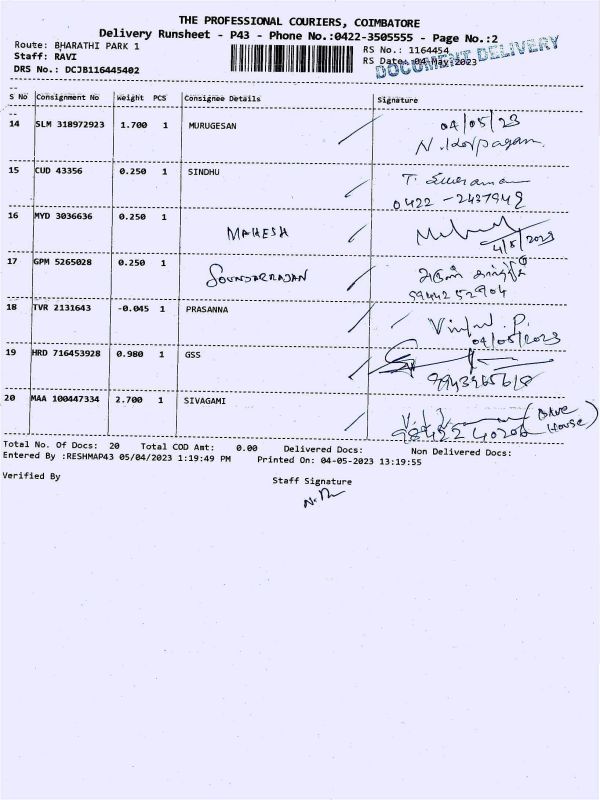 THE PROFESSIONAL COURIERS, COIMBATORE
Delivery Runsheet - P43 - Phone No.:0422-3505555 - Page No.:2
Route: BHARATHI PARK 1
Staff: RAVI
DRS No.: DCJB116445402
RS No.: 1164454
RS Date: 04 May 2023
DOCUMENT DELIVERY
S No Consignment No Weight PCS Consignee Details Signature
14 SLM 318972923 1.700 1 MURUGESAN 04/05/23
15 CUD 43356 0.250 1 SINDHU
0422 - 2437949
16 MYD 3036636 0.250 1 MAHESH
4/5/2023
17 GPM 5265028 0.250 1 SOUNDARRAJAN
9944252904
18 TVR 2131643 -0.045 1 PRASANNA
04/05/2023
19 HRD 716453928 0.980 1 GSS
9943965618
20 MAA 100447334 2.700 1 SIVAGAMI
9842240206
Total No. Of Docs: 20 Total COD Amt: 0.00 Delivered Docs: Non Delivered Docs:
Entered By :RESHMAP43 05/04/2023 1:19:49 PM Printed On: 04-05-2023 13:19:55
Verified By
Staff Signature